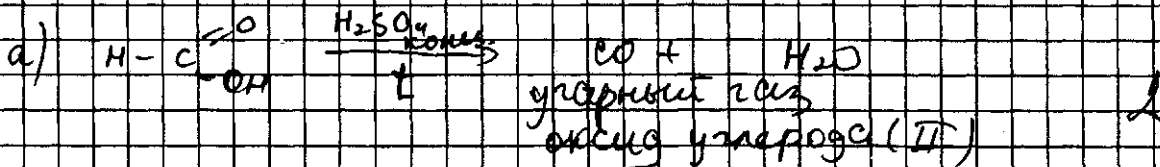 а) H - C =O -OH H₂SO₄ конц. t → CO + H₂O
угарный газ
оксид углерода (II)